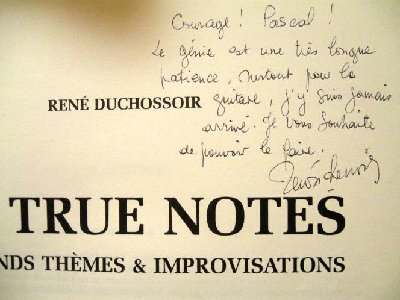 Courage ! Pascal !
Le génie est une très longue
patience, surtout pour la
RENÉ DUCHOSSOIR
guitare, j'y suis jamais
arrivé. Je vous souhaite
de pouvoir le faire.
TRUE NOTES
NDS THÈMES & IMPROVISATIONS